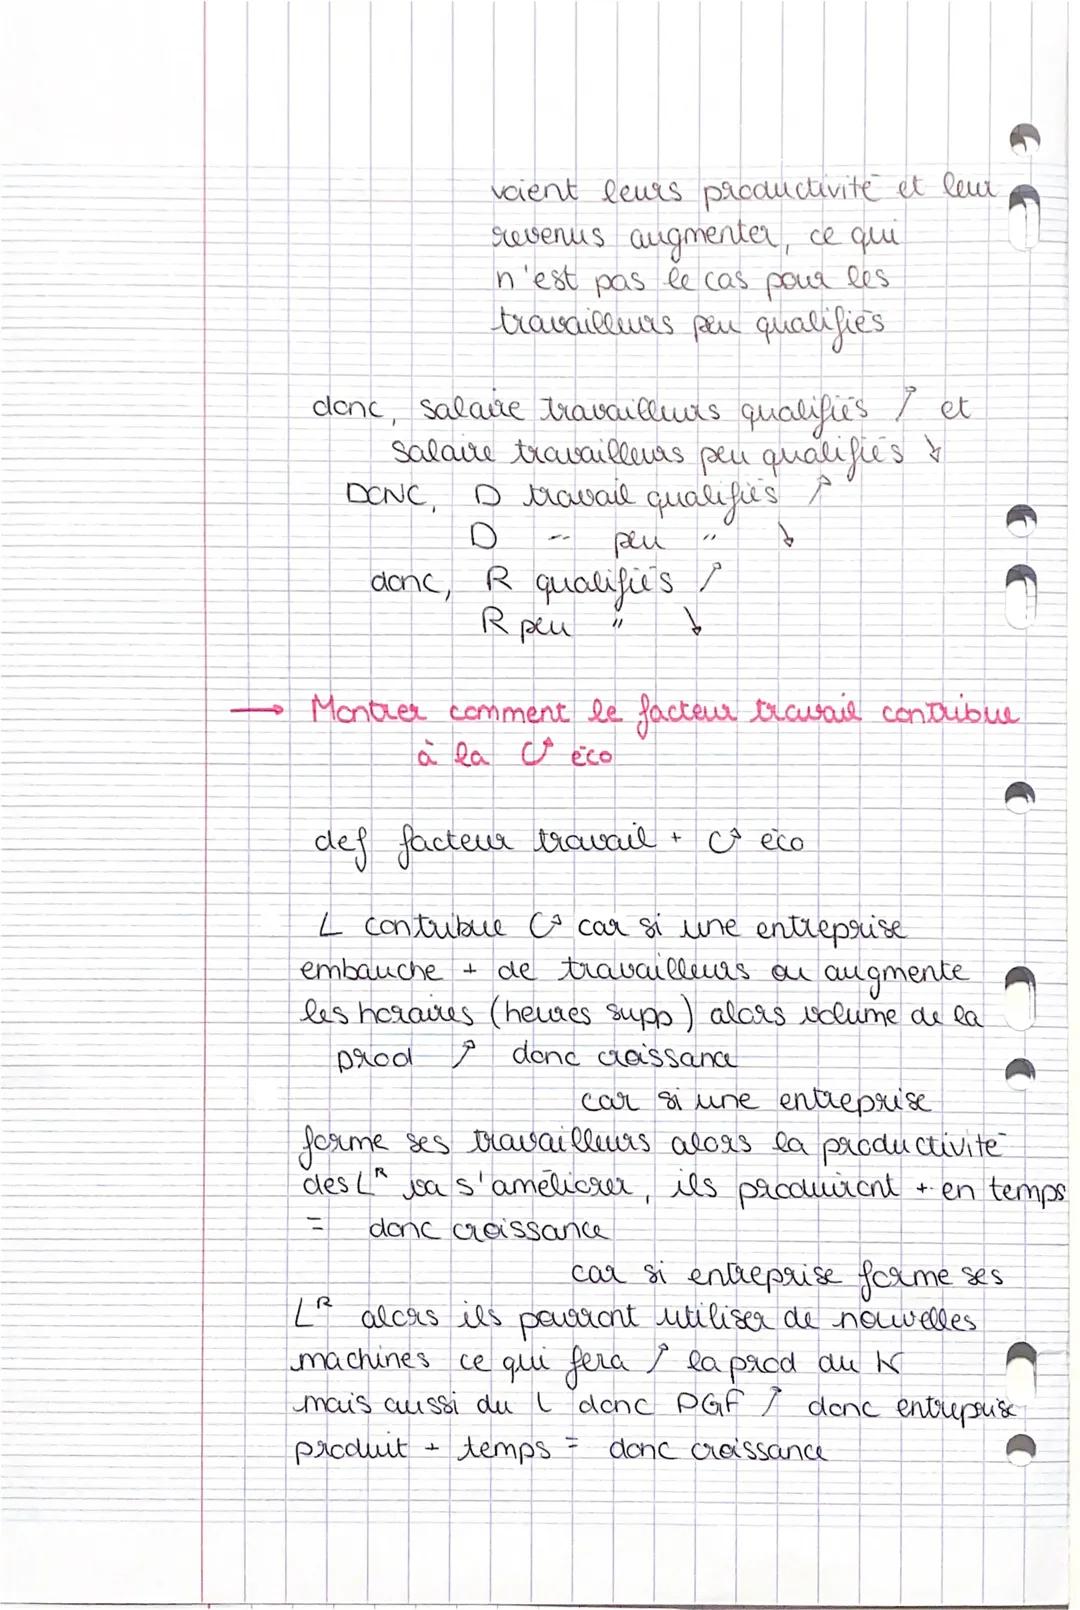 voient leurs productivité et leur
revenus augmenter, ce qui
n'est pas le cas pour les
travailleurs peu qualifiés
donc, salaire travailleurs qualifiés ↗ et
salaire travailleurs peu qualifiés ↘
DONC, D travail qualifiés ↗
D -- peu " ↘
donc, R qualifiés ↗
R peu " ↘
→ Montrer comment le facteur travail contribue
à la C° éco
def facteur travail + C° éco
L contribue C° car si une entreprise
embauche + de travailleurs ou augmente
les horaires (heures supp) alors volume de la
prod ↗ donc croissance
car si une entreprise
forme ses travailleurs alors la productivité
des Lᴿ va s'améliorer, ils produiront + en temps
= donc croissance
car si entreprise forme ses
Lᴿ alors ils pourront utiliser de nouvelles
machines ce qui fera ↗ la prod du K
mais aussi du L donc PGF ↗ donc entreprise
produit + temps = donc croissance